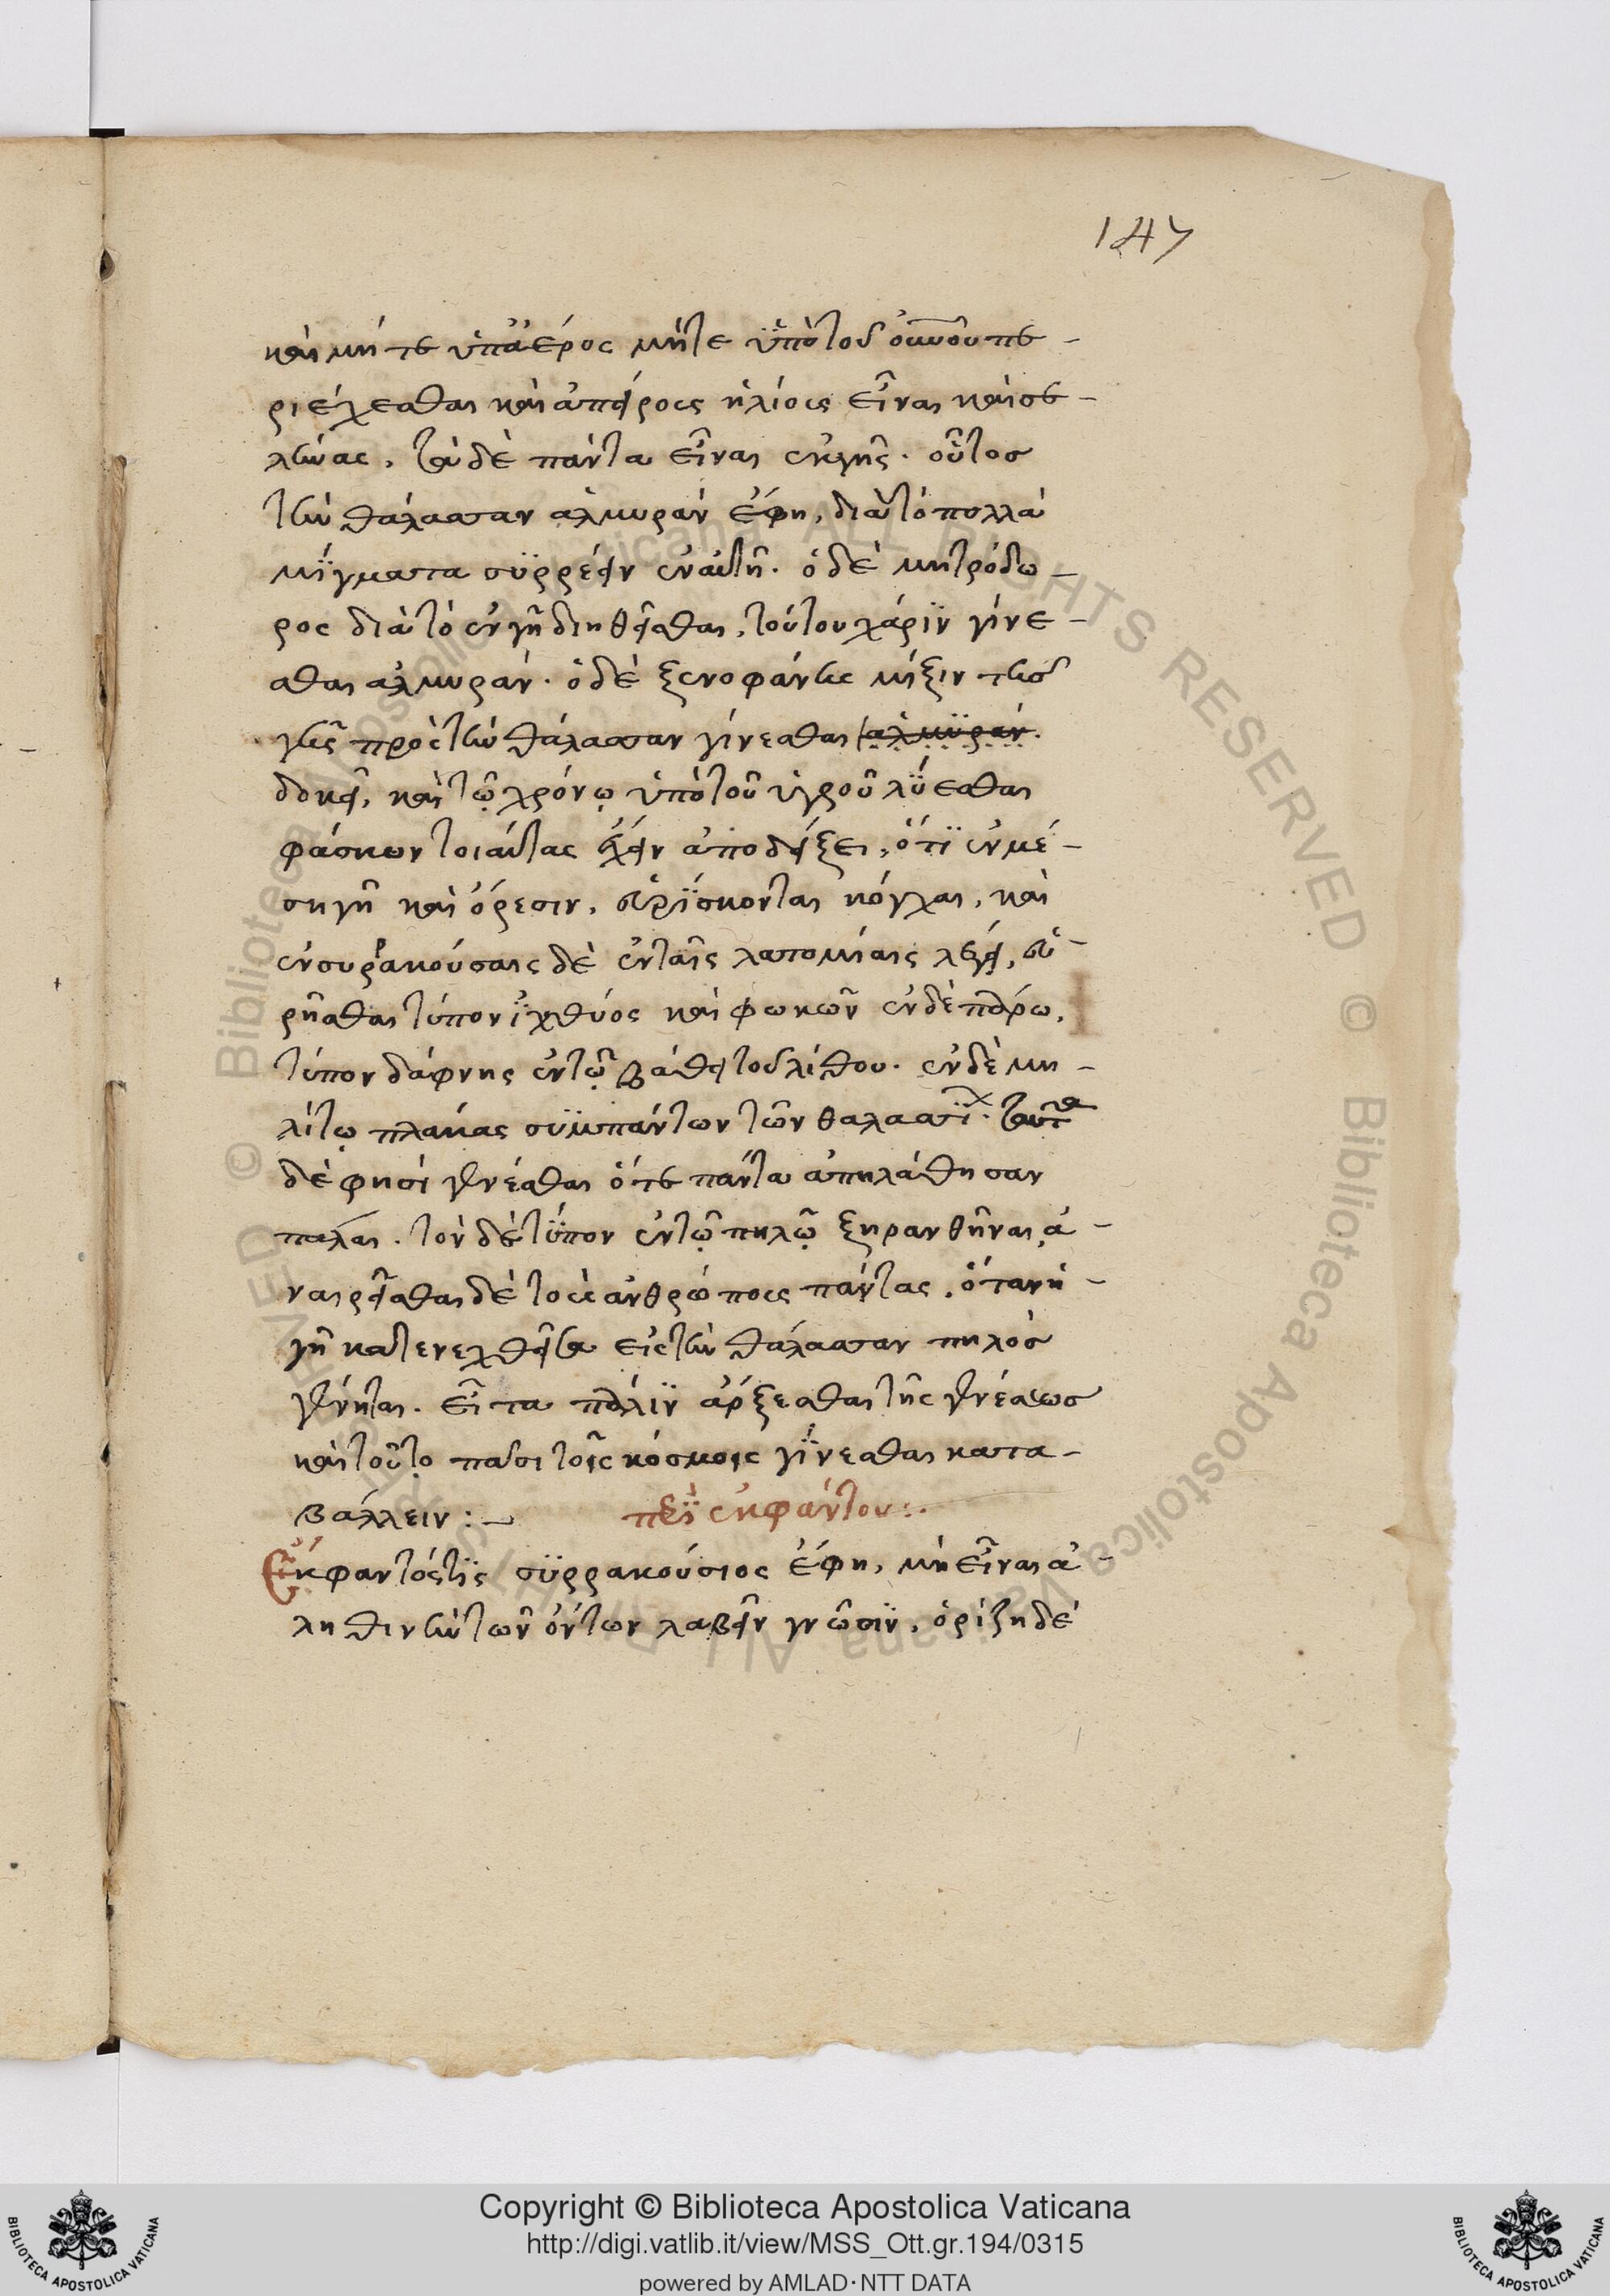 147
καὶ μήτε ὑπ' ἀέρος μήτε ὑπὸ τοῦ οὐνοῦ πε-
ριέχεσθαι καὶ ἀπείρους ἡλίους εἶναι καὶ σε-
λήνας, τὰ δὲ πάντα εἶναι ἐκ γῆς. οὗτος
τὴν θάλασσαν ἁλμυρὰν ἔφη, διὰ τὸ πολλὰ
μΐγματα συρρέειν ἐν αὐτῆ. ὁ δὲ μητρόδω-
ρος διὰ τὸ ἐν γῆ διηθεῖσθαι, τούτου χάριν γίνε-
σθαι ἁλμυράν. ὁ δὲ ξενοφάνης μίξιν τῆς
γῆς πρὸς τὴν θάλασσαν γίνεσθαι ἁλμυράν.
δοκεῖ, καὶ τῷ χρόνῳ ὑπὸ τοῦ ὑγροῦ λύεσθαι
φάσκων τοιαύτας ἔχειν ἀποδείξεις, ὅτι ἐν μέ-
ση γῆ καὶ ὄρεσιν, εὑρίσκονται κόγχαι, καὶ
ἐν συρακούσαις δὲ ἐν ταῖς λατομίαις λέγει, εὑ-
ρῆσθαι τύπον ἰχθύος καὶ φωκῶν ἐν δὲ πάρω,
τύπον δάφνης ἐν τῷ βάθει τοῦ λίθου. ἐν δὲ μη-
λίτῳ πλάκας συμπάντων τῶν θαλασσί. ταῦτα
δὲ φησὶ γενέσθαι ὅτε πάντα ἐπηλάθησαν
πάλαι. τὸν δὲ τύπον ἐν τῷ πηλῷ ξηρανθῆναι, ἀ-
ναιρεῖσθαι δὲ τοὺς ἀνθρώπους πάντας, ὅταν ἡ
γῆ κατενεχθεῖσα εἰς τὴν θάλασσαν πηλὸς
γένηται. εἶτα πάλιν ἄρξεσθαι τῆς γενέσεως
καὶ τοῦτο πᾶσι τοῖς κόσμοις γίνεσθαι κατα-
βάλλειν:- πεὶ ἐκφάντου:.
Ἔκφαντός τις συρρακούσιος ἔφη, μὴ εἶναι ἀ-
ληθινὴν τῶν ὄντων λαβεῖν γνῶσιν, ὁρίζη δὲ
Copyright © Biblioteca Apostolica Vaticana
http://digi.vatlib.it/view/MSS_Ott.gr.194/0315
powered by AMLAD·NTT DATA